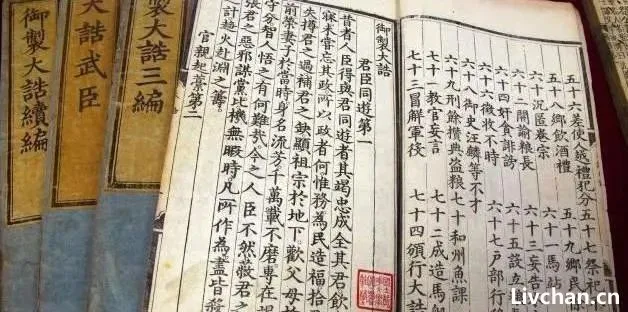 五十六差使人越禮犯分 五十七祭祀
五十八鄉飲酒禮 五十九鄉民
六十沉匿卷宗 六十一馬站
六十二閒諭粮長 六十三妄告
六十四奸食誹謗 六十五設立
六十六徵收不時 六十七戶部行
六十八御史汪麟等不才
六十九刑餘攢典盗粮 七十和州魚課
七十一教官妄言 七十二成造馬船
七十三冒解軍役 七十四頒行大誥
御製大誥
君臣同遊第一
昔者人臣得與君同遊者其竭忠成全其君飲
寐未嘗忘其政所以政者何惟務為民造福拾
失撙君之過補君之缺顯祖宗於地下歡父母
前榮妻子於當時身名流芳千萬載不磨專在竭
守分智人悟之有何難哉今之人臣不然蔽君之
張君之惡邪謀黨比機無暇時凡所作為盡皆殺
計趨火赴淵之籌
官親起藁第二
製大誥三編
大誥武臣
御製大誥續編
Livchan.cn